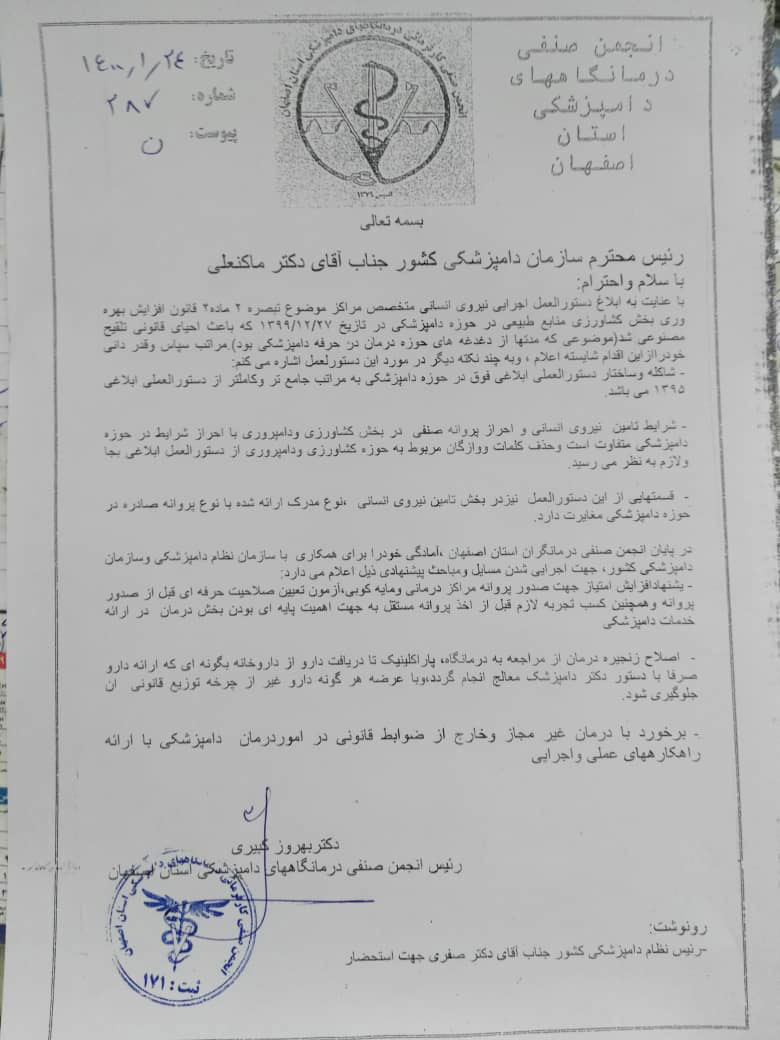 انجمن صنفی
درمانگاههای
دامپزشکی
استان
اصفهان
انجمن صنفی کارفرمائی درمانگاههای دامپزشکی استان اصفهان
تاسیس ۱۳۷۶
تاریخ: ۱۴۰۰/۱/۲۴
شماره: ۲۸۷
پیوست: ن
بسمه تعالی
رئیس محترم سازمان دامپزشکی کشور جناب آقای دکتر ماکنعلی
با سلام واحترام:
با عنایت به ابلاغ دستورالعمل اجرایی نیروی انسانی متخصص مراکز موضوع تبصره ۲ ماده۲ قانون افزایش بهره
وری بخش کشاورزی منابع طبیعی در حوزه دامپزشکی در تاریخ ۱۳۹۹/۱۲/۲۷ که باعث احیای قانونی تلقیح
مصنوعی شد(موضوعی که مدتها از دغدغه های حوزه درمان در حرفه دامپزشکی بود).مراتب سپاس وقدر دانی
خودراازاین اقدام شایسته اعلام ، وبه چند نکته دیگر در مورد این دستورلعمل اشاره می کنم:
- شاکله وساختار دستورالعملی ابلاغی فوق در حوزه دامپزشکی به مراتب جامع تر وکاملتر از دستورالعملی ابلاغی
۱۳۹۵ می باشد.
- شرایط تامین نیروی انسانی و احراز پروانه صنفی در بخش کشاورزی ودامپروری با احراز شرایط در حوزه
دامپزشکی متفاوت است وحذف کلمات وواژگان مربوط به حوزه کشاورزی ودامپروری از دستورالعمل ابلاغی بجا
ولازم به نظر می رسید.
- قسمتهایی از این دستورالعمل نیزدر بخش تامین نیروی انسانی ،نوع مدرک ارائه شده با نوع پروانه صادره در
حوزه دامپزشکی مغایرت دارد.
در پایان انجمن صنفی درمانگران استان اصفهان ،آمادگی خودرا برای همکاری با سازمان نظام دامپزشکی وسازمان
دامپزشکی کشور، جهت اجرایی شدن مسایل ومباحث پیشنهادی ذیل اعلام می دارد:
- یشنهادافزایش امتیاز جهت صدور پروانه مراکز درمانی ومایه کوبی،آزمون تعیین صلاحیت حرفه ای قبل از صدور
پروانه وهمچنین کسب تجربه لازم قبل از اخذ پروانه مستقل به جهت اهمیت پایه ای بودن بخش درمان در ارائه
خدمات دامپزشکی
- اصلاح زنجیره درمان از مراجعه به درمانگاه، پاراکلینیک تا دریافت دارو از داروخانه بگونه ای که ارائه دارو
صرفا با دستور دکتر دامپزشک معالج انجام گردد،وبا عرضه هر گونه دارو غیر از چرخه توزیع قانونی ان
جلوگیری شود.
- برخورد با درمان غیر مجاز وخارج از ضوابط قانونی در اموردرمان دامپزشکی با ارائه
راهکارههای عملی واجرایی
دکتربهروز کبیری
رئیس انجمن صنفی درمانگاههای دامپزشکی استان اصفهان
انجمن صنفی کارفرمائی درمانگاههای دامپزشکی استان اصفهان
ثبت: ۱۷۱
رونوشت:
-رئیس نظام دامپزشکی کشور جناب آقای دکتر صفری جهت استحضار